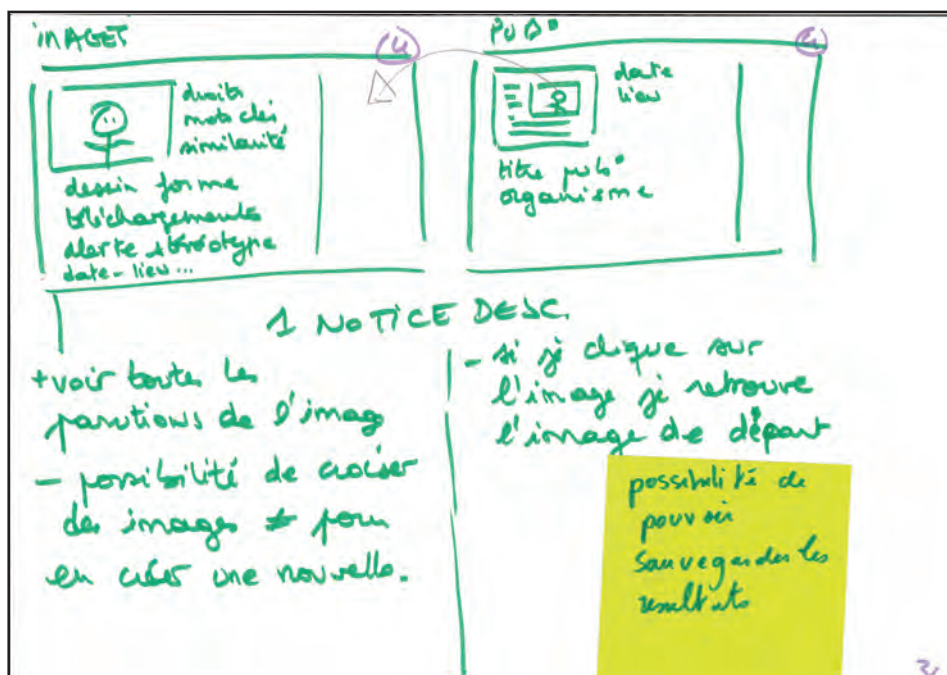 IMAGES
4
droits
mots clés
similarité
dessin forme
téléchargements
alerte stéréotype
date - lieu ...
PUB°
4
date
lieu
titre pub°
organisme
1 NOTICE DESC.
+ voir toutes les
parutions de l'imag
- possibilité de croiser
des images ≠ pour
en créer une nouvelle.
- si je clique sur
l'image je retrouve
l'image de départ
possibilité de
pouvoir
sauvegarder les
resultats